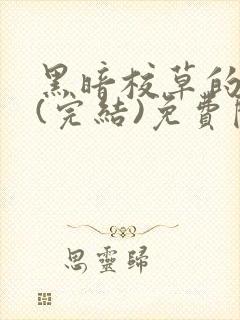 黑暗校草的
(完結)免費
思靈歸